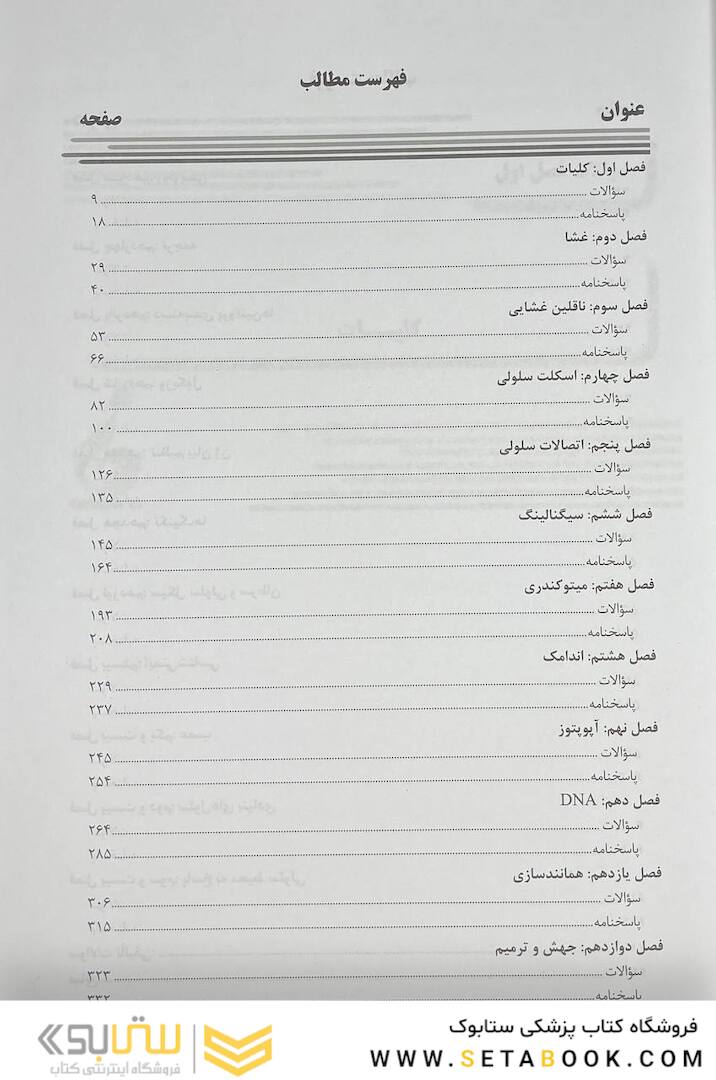 فهرست مطالب
عنوان
صفحه
فصل اول: کلیات
سؤالات ۹
پاسخنامه ۱۸
فصل دوم: غشا
سؤالات ۲۹
پاسخنامه ۴۰
فصل سوم: ناقلین غشایی
سؤالات ۵۳
پاسخنامه ۶۶
فصل چهارم: اسکلت سلولی
سؤالات ۸۲
پاسخنامه ۱۰۰
فصل پنجم: اتصالات سلولی
سؤالات ۱۲۶
پاسخنامه ۱۳۵
فصل ششم: سیگنالینگ
سؤالات ۱۴۵
پاسخنامه ۱۶۴
فصل هفتم: میتوکندری
سؤالات ۱۹۳
پاسخنامه ۲۰۸
فصل هشتم: اندامک
سؤالات ۲۲۹
پاسخنامه ۲۳۷
فصل نهم: آپوپتوز
سؤالات ۲۴۵
پاسخنامه ۲۵۴
فصل دهم: DNA
سؤالات ۲۶۴
پاسخنامه ۲۸۵
فصل یازدهم: همانندسازی
سؤالات ۳۰۶
پاسخنامه ۳۱۵
فصل دوازدهم: جهش و ترمیم
سؤالات ۳۲۳
پاسخنامه ۳۳۲
فروشگاه کتاب پزشکی ستابوک
WWW.SETABOOK.COM
ستابوک
فروشگاه اینترنتی کتاب